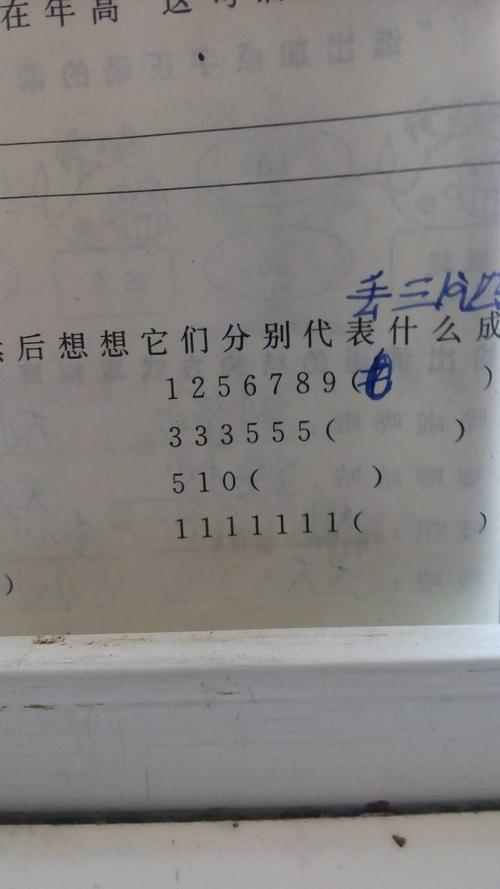 在年高 这
丢三
后想想它们分别代表什么成
1256789( )
333555( )
510( )
1111111( )
)